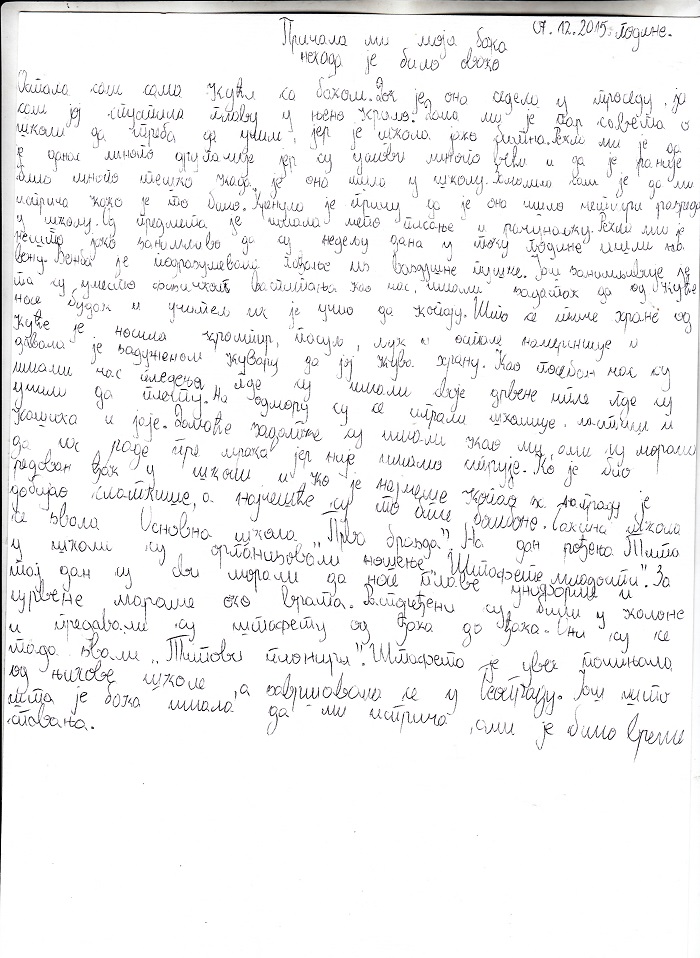 07.12.2015. године.
Причала ми моја бака
некада је било овако
Остала сам сама кући са баком. Док је она седела у троседу, ја
сам јој спустила главу у њено крило. Дала ми је пар савета о
школи да треба да учим, јер је школа јако битна. Рекла ми је да
је данас много другачије јер су услови много већи и да је раније
било много тешко када је она ишла у школу. Хмолила сам је да ми
исприча како је то било. Кренула је причу да је она ишла четири разреда
у школу. Од предмета је имала лепо писање и рачунаљку. Рекла ми је
нешто јако занимљиво да су недељу дана у току године ишли на
вежбу. Вежба је подразумевала гађање из ваздушне пушке. Још занимљивије је
та су уместо физичког васпитања као час, имали задатак да од куће
носе будак и учитељ их је учио да копају. Што се тиче хране од
куће је носила кромпир, пасуљ, лук и остале намернице и
давала је задуженом кувару да јој кува храну. Као посебан час су
имали час плетења где су имали своје дрвене игле где су
учили да плету. На одмору су се играли школице, ластиш и
кашика и јаје. Домаће задатке су имали као ми, али су морали
да их раде пре мрака јер није имало струје. Ко је био
редован ђак у школи и ко је најлепше копао за награду је
добијао слаткише, а најчешће су то биле бомбоне. Бакина школа
се звала Основна школа „Прва бразда”. На дан рођења Тита
у школи су организовали ношење „Штафете младости”. За
тај дан су сви морали да носе плаве униформе и
црвене мараме око врата. Распоређени су били у колоне
и предавали су штафету од ђака до ђака. Они су се
тада звали „Титови пионири”. Штафета је увек почињала
од њихове школе, а завршавала се у Београду. Још што
шта је бака имала да ми исприча, али је било време
спавања.